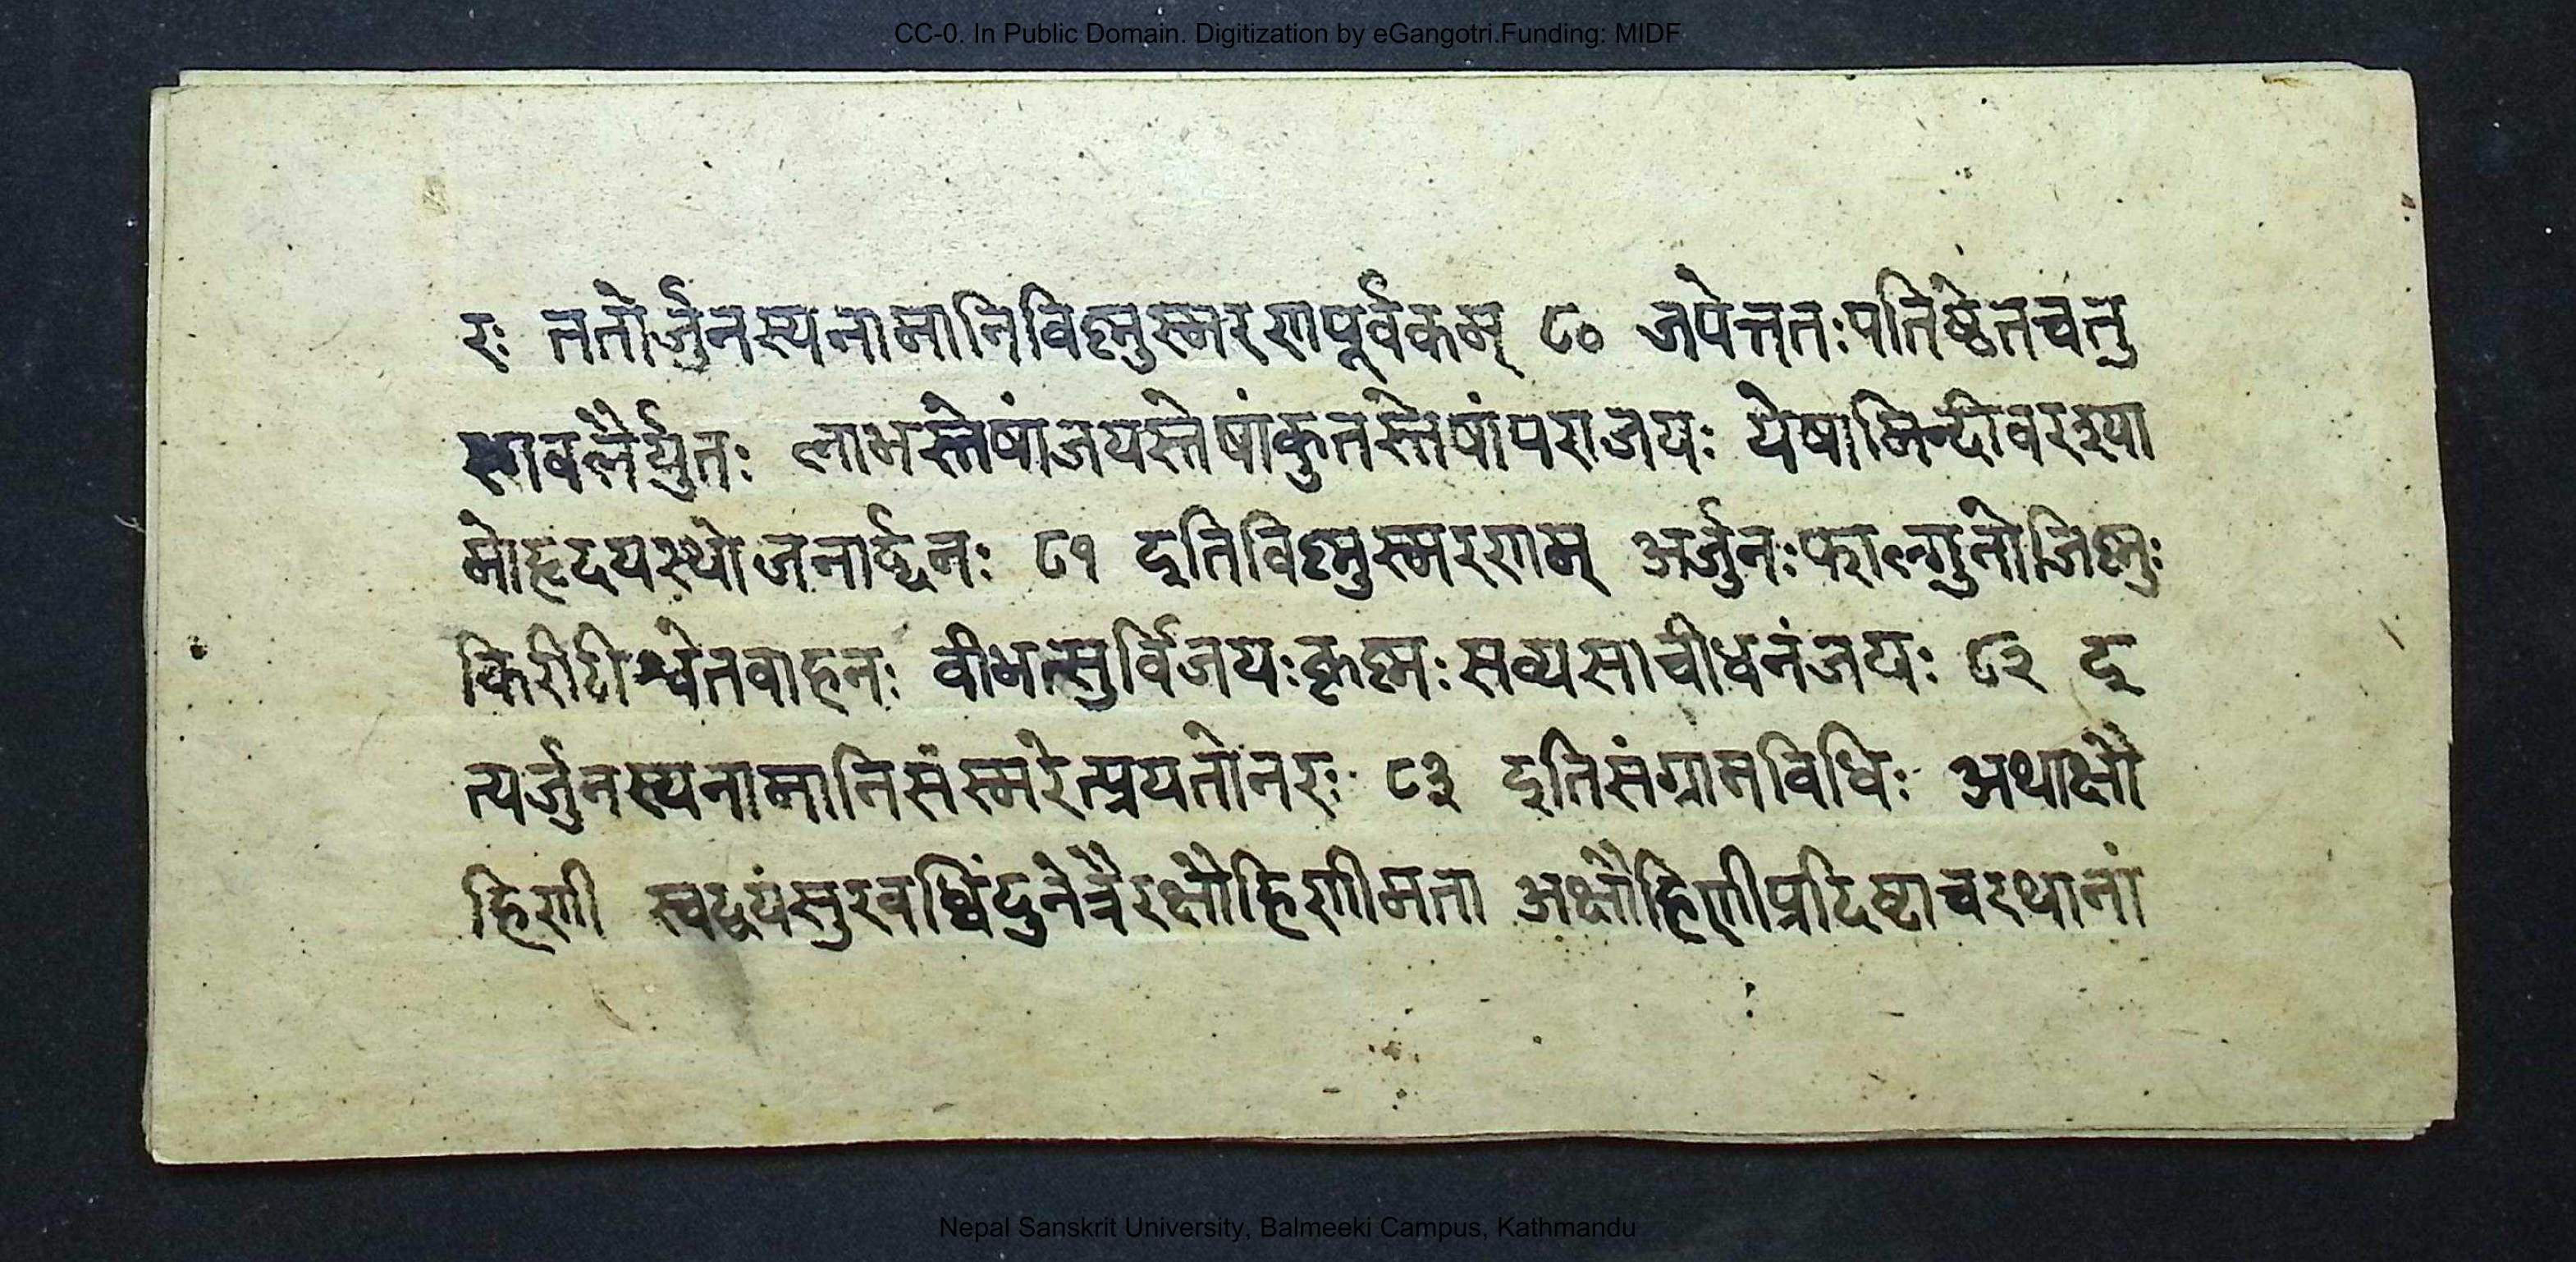 CC-0. In Public Domain. Digitization by eGangotri.Funding: MIDF
रः ततोर्जुनस्यनामानिविष्णुस्मरणपूर्वकम् ८० जपेत्ततःपतिष्ठेतचतु
रङ्गवलैर्युतः लाभस्तेषांजयस्तेषांकुतस्तेषांपराजयः येषामिन्दीवरश्या
मोहृदयस्थोजनार्द्दनः ८१ इतिविष्णुस्मरणम् अर्जुनःफाल्गुनोजिष्णुः
किरीटीश्वेतवाहनः वीभत्सुर्विजयःकृष्णःसव्यसाचीधनंजयः ८२ इ
त्यर्जुनस्यनामानिसंस्मरेत्प्रयतोनरः ८३ इतिसंग्रामविधिः अथाक्षौ
हिणी स्वद्वयंसुरवध्विंदुनेत्रैरक्षौहिणीमता अक्षौहिणीप्रदिष्टाचरथानां
Nepal Sanskrit University, Balmeeki Campus, Kathmandu